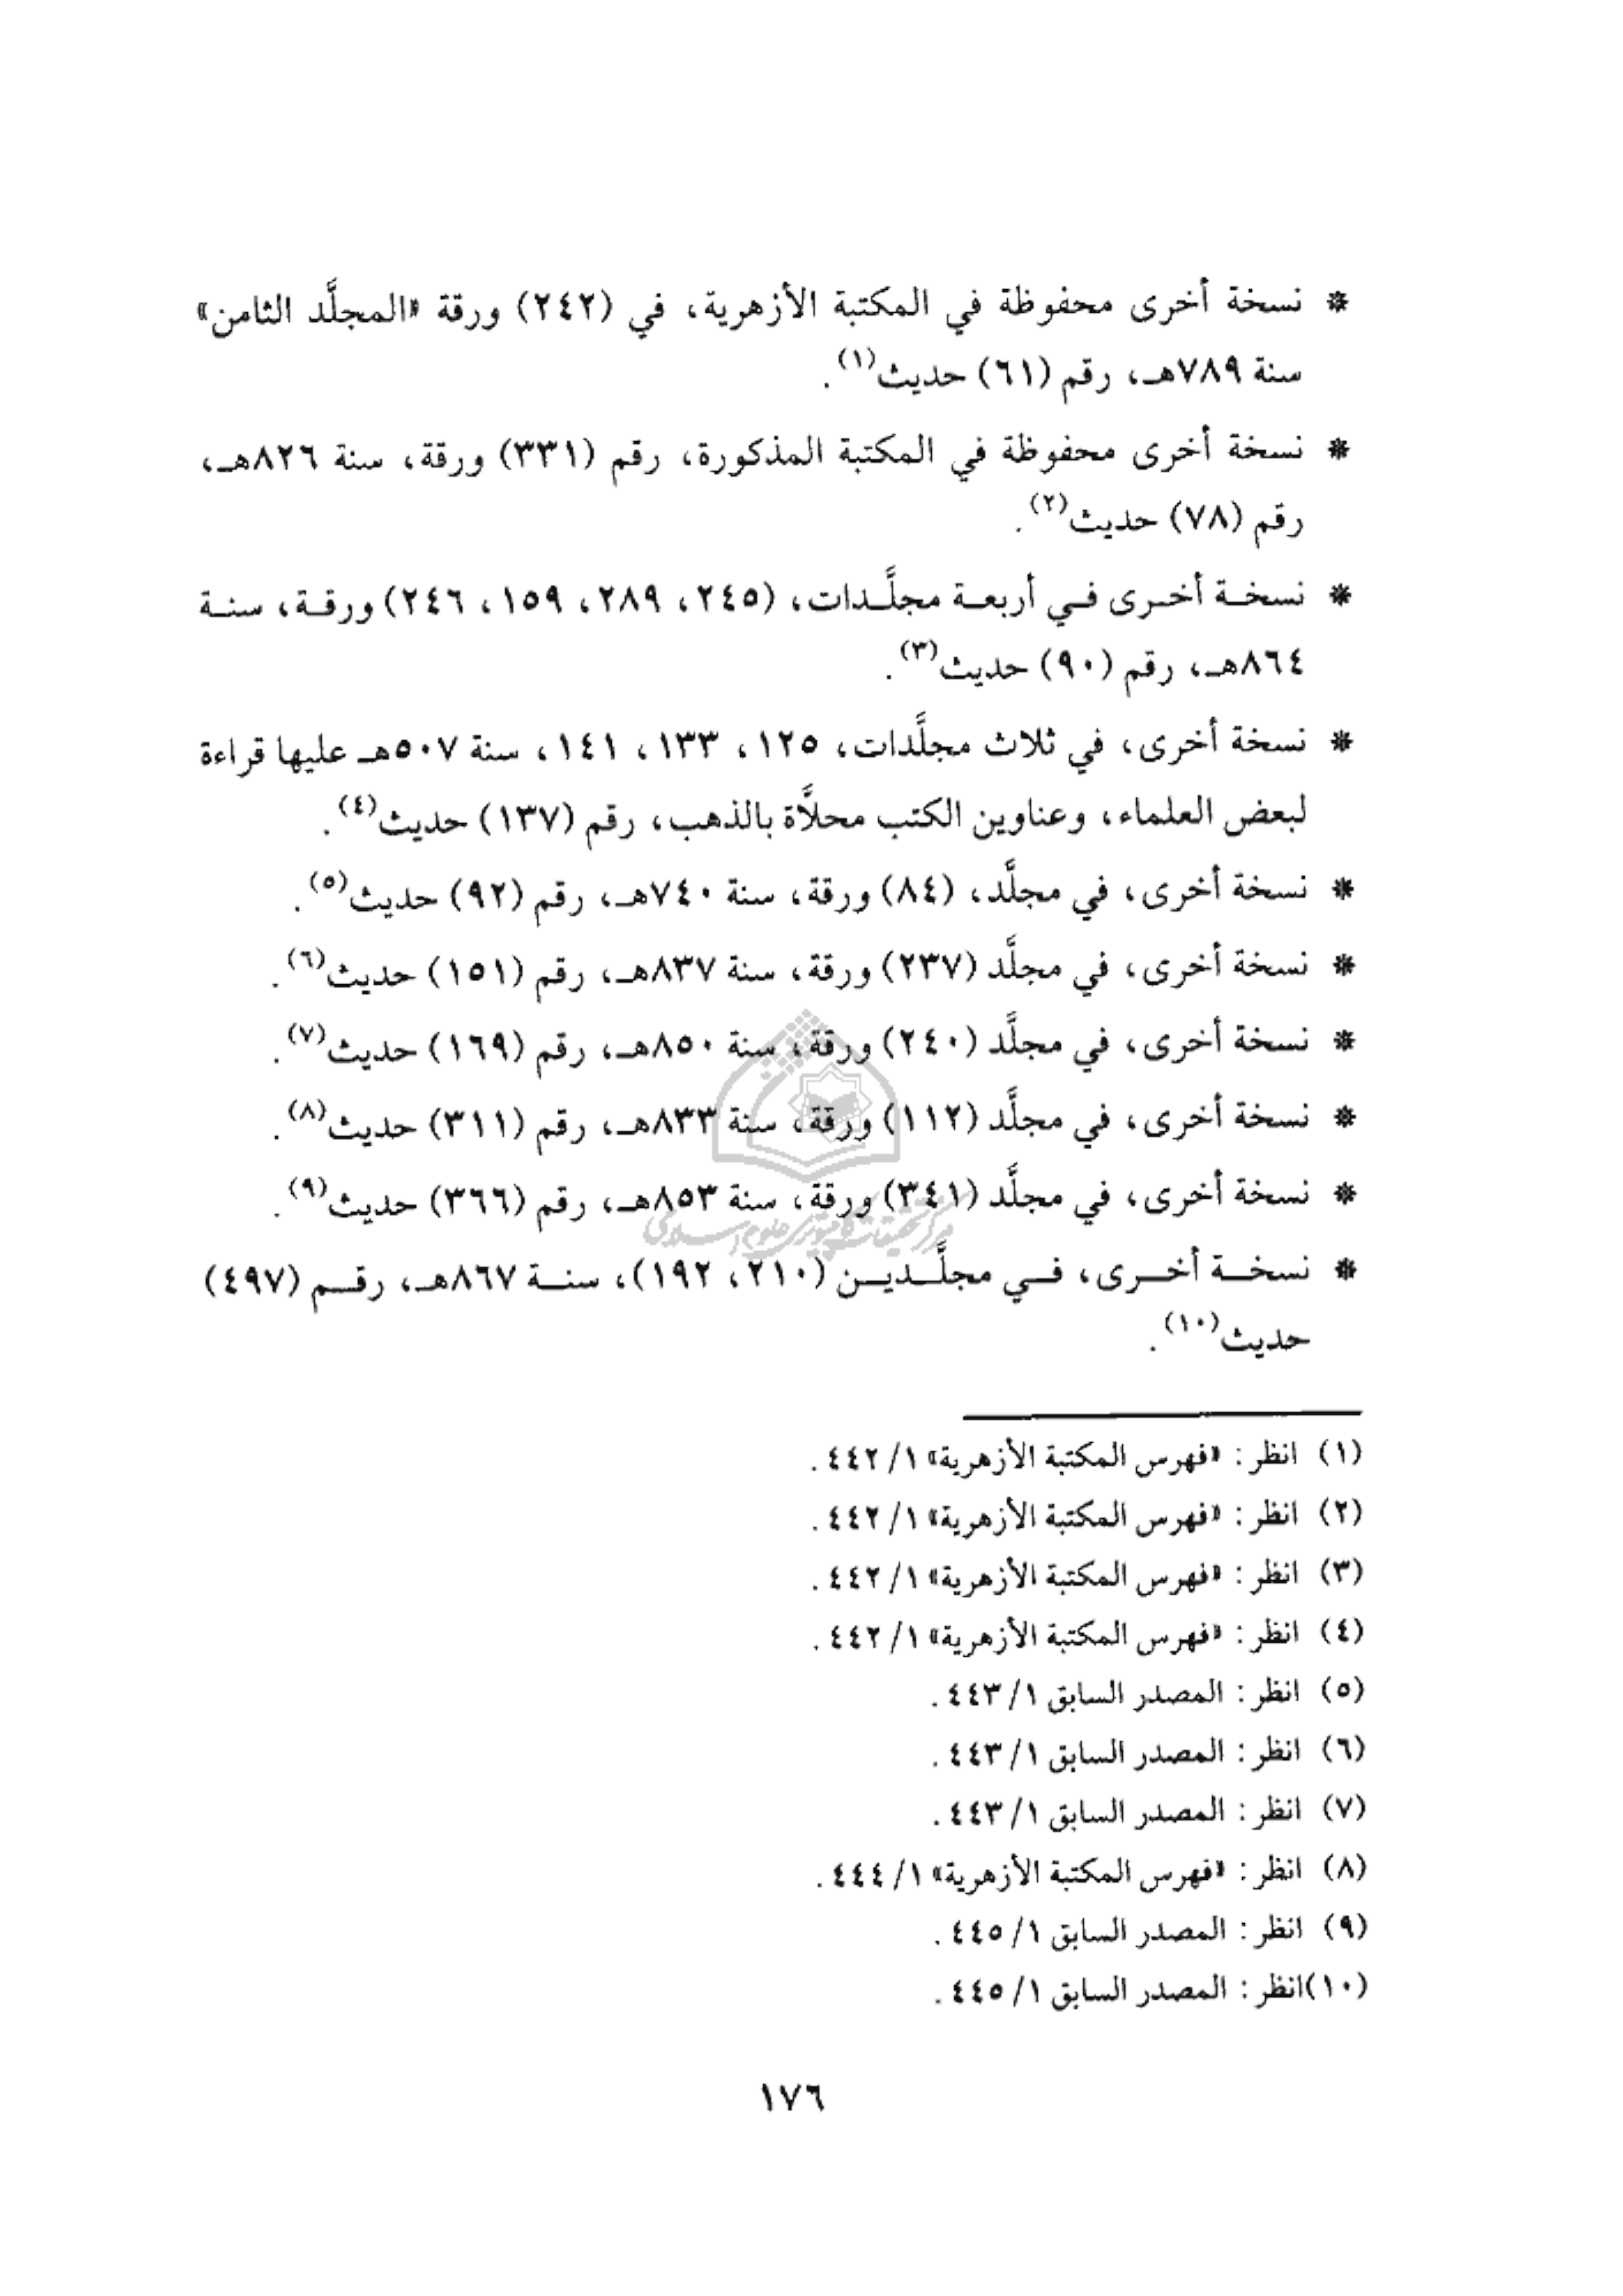 * نسخة أخرى محفوظة في المكتبة الأزهرية، في (٢٤٢) ورقة «المجلَّد الثامن»
سنة ٧٨٩هـ، رقم (٦١) حديث(١).
* نسخة أخرى محفوظة في المكتبة المذكورة، رقم (٣٣١) ورقة، سنة ٨٢٦هـ،
رقم (٧٨) حديث(٢).
* نسخة أخرى في أربعة مجلَّدات، (٢٤٥، ٢٨٩، ١٥٩، ٢٤٦) ورقة، سنة
٨٦٤هـ، رقم (٩٠) حديث(٣).
* نسخة أخرى، في ثلاث مجلَّدات، ١٢٥، ١٣٣، ١٤١، سنة ٥٠٧هـ عليها قراءة
لبعض العلماء، وعناوين الكتب محلاَّة بالذهب، رقم (١٣٧) حديث(٤).
* نسخة أخرى، في مجلَّد، (٨٤) ورقة، سنة ٧٤٠هـ، رقم (٩٢) حديث(٥).
* نسخة أخرى، في مجلَّد (٢٣٧) ورقة، سنة ٨٣٧هـ، رقم (١٥١) حديث(٦).
* نسخة أخرى، في مجلَّد (٢٤٠) ورقة، سنة ٨٥٠هـ، رقم (١٦٩) حديث(٧).
* نسخة أخرى، في مجلَّد (١١٢) ورقة، سنة ٨٣٣هـ، رقم (٣١١) حديث(٨).
* نسخة أخرى، في مجلَّد (٣٤١) ورقة، سنة ٨٥٣هـ، رقم (٣٦٦) حديث(٩).
مركز تحقيقات كامپيوترى علوم اسلامى
* نسخة أخرى، في مجلَّدين (٢١٠، ١٩٢)، سنة ٨٦٧هـ، رقم (٤٩٧)
حديث(١٠).
(١) انظر: «فهرس المكتبة الأزهرية» ١/ ٤٤٢.
(٢) انظر: «فهرس المكتبة الأزهرية» ١/ ٤٤٢.
(٣) انظر: «فهرس المكتبة الأزهرية» ١/ ٤٤٢.
(٤) انظر: «فهرس المكتبة الأزهرية» ١/ ٤٤٢.
(٥) انظر: المصدر السابق ١/ ٤٤٣.
(٦) انظر: المصدر السابق ١/ ٤٤٣.
(٧) انظر: المصدر السابق ١/ ٤٤٣.
(٨) انظر: «فهرس المكتبة الأزهرية» ١/ ٤٤٤.
(٩) انظر: المصدر السابق ١/ ٤٤٥.
(١٠) انظر: المصدر السابق ١/ ٤٤٥.
١٧٦